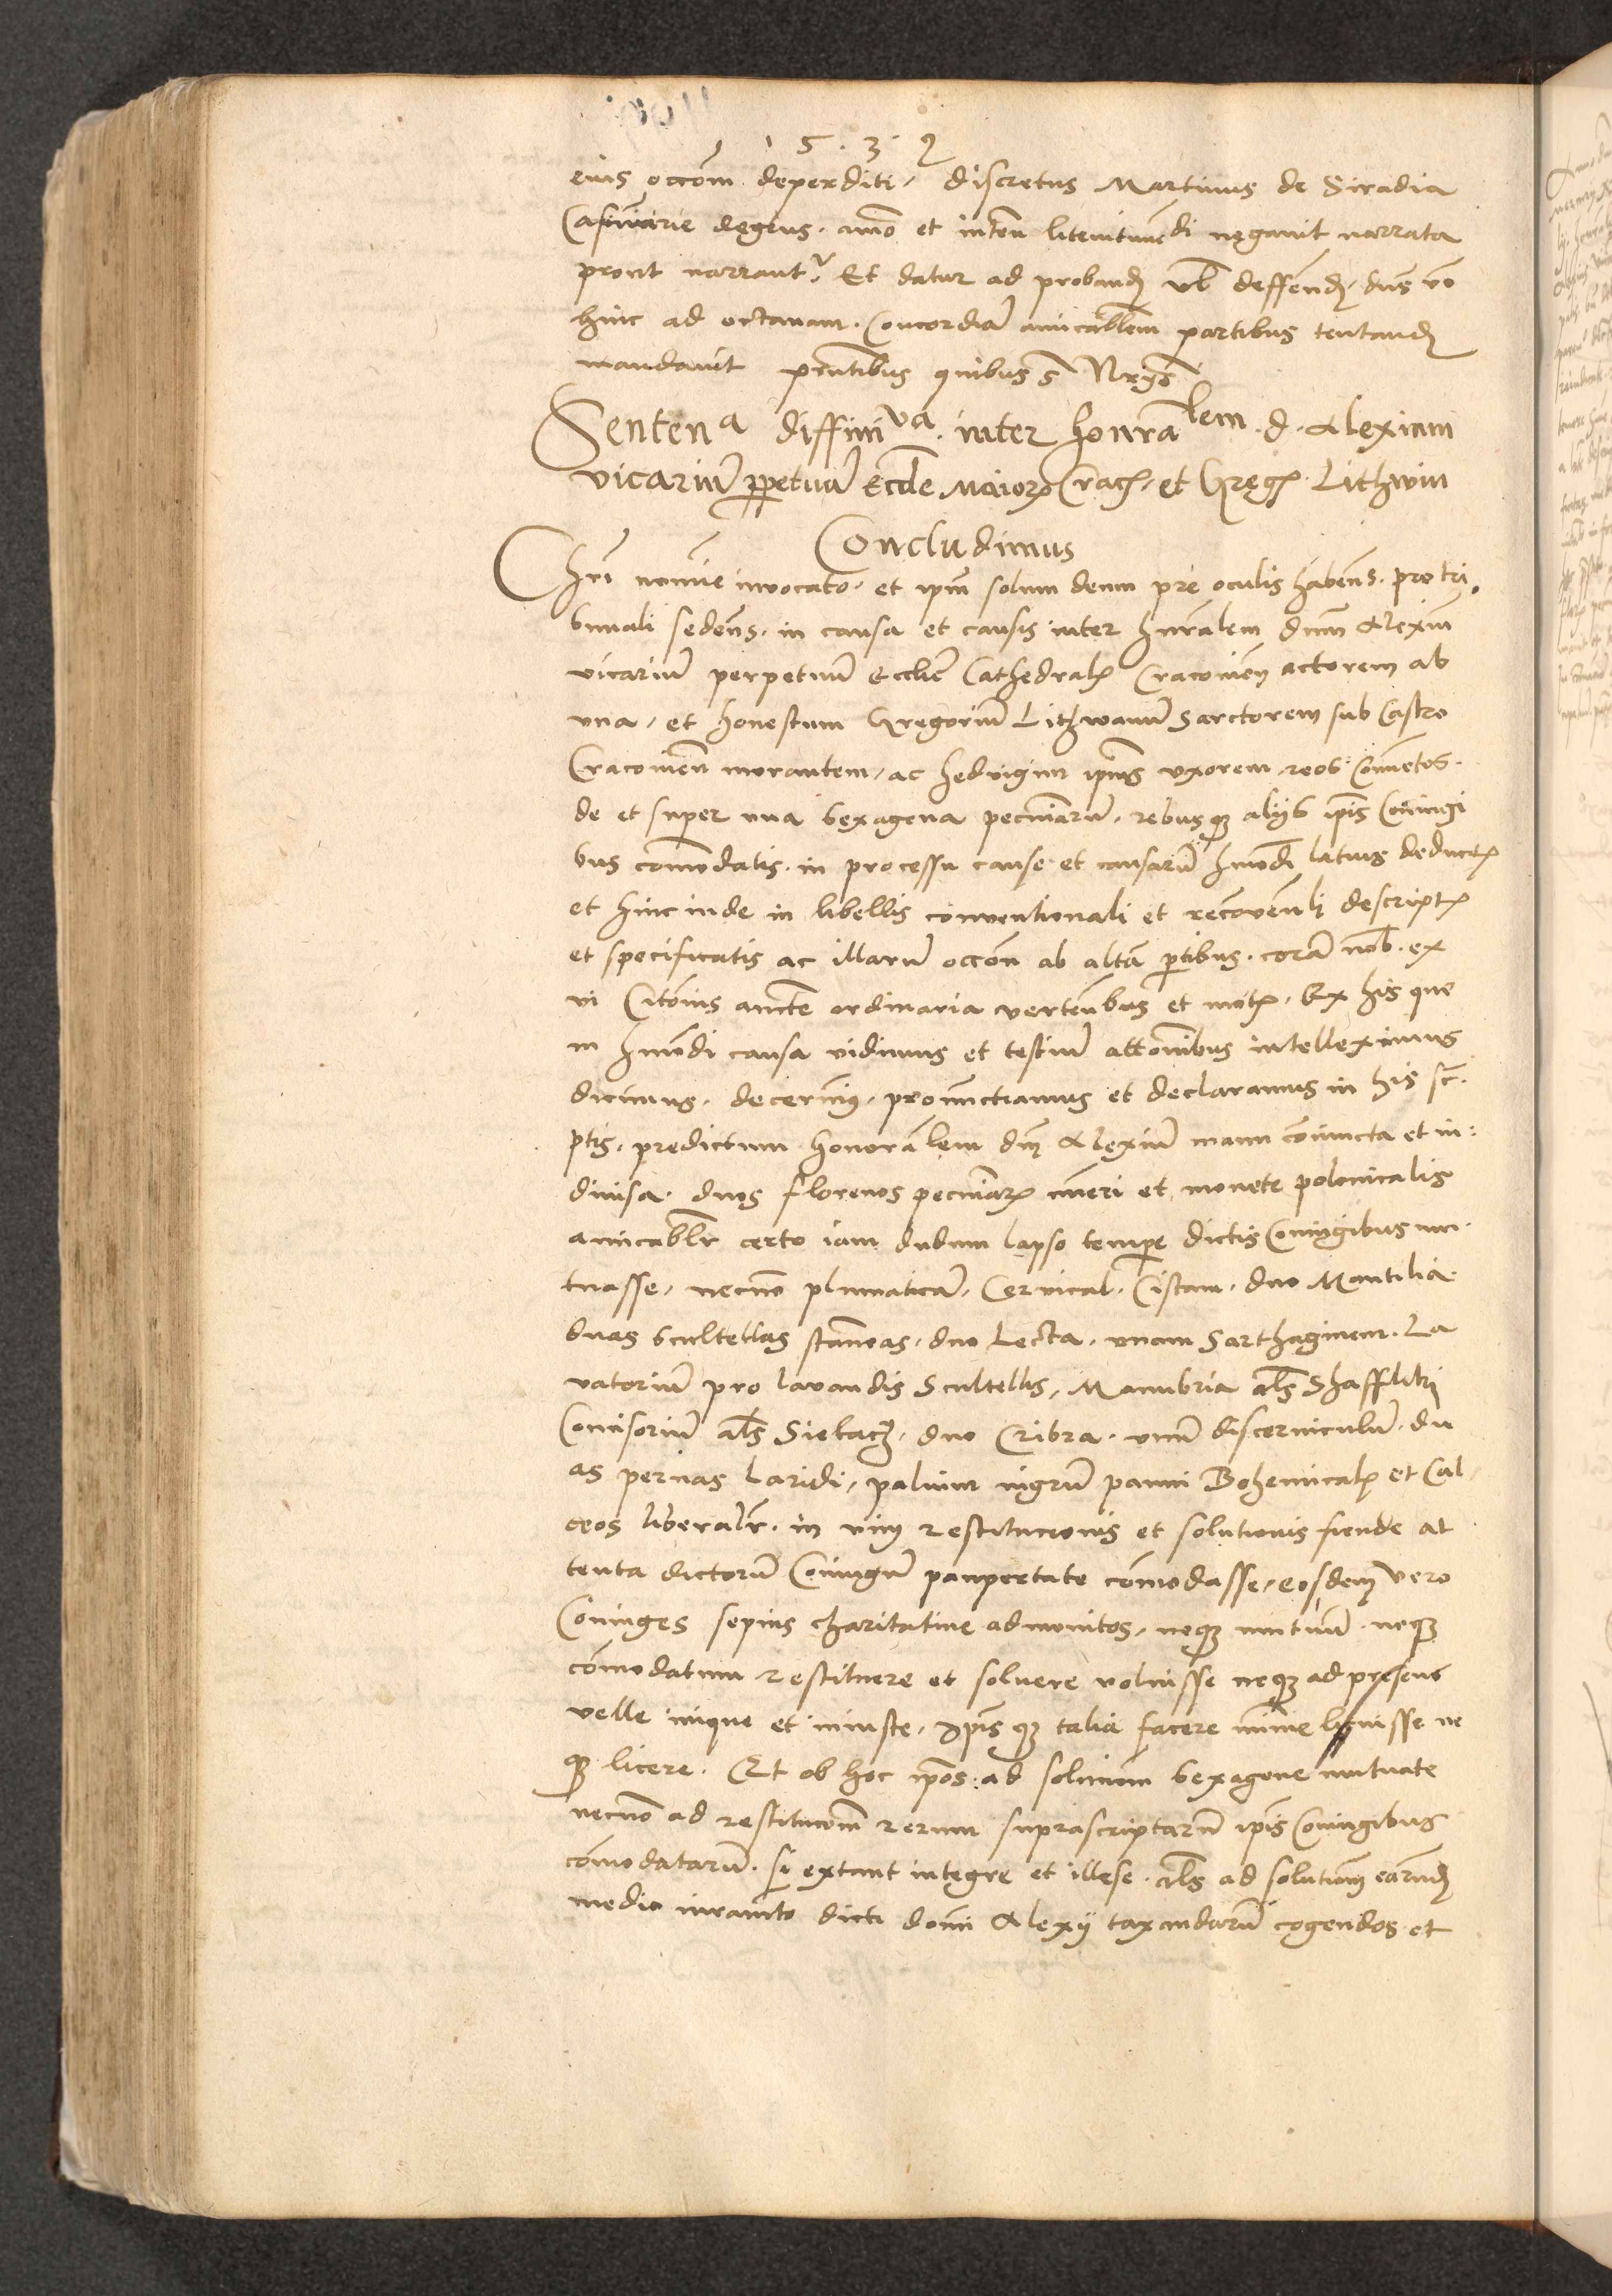 1 5 . 3 2
eius occōm deperditi, discretus Martinus de Siradia
Casimirie degens. aīmo et inten litem di negavit narrata
prout narrantr. Et datur ad proband vl deffend, dns vo
hinc ad octavam. Concordiā amicablem partibus tentand
mandavit pntibus quibus s
Sentena diffinva. inter honralem. d. Alexium
vicariū ppetuū Eccle Maioris Crac. et Greg. Lithwin
Concludimus
Chri nomie invocato. et ipm solum deum pre oculis habens. pro tri
bunali sedens. in causa et causis inter hnralem dnm Alexiū
vicariū perpetuū Ecclie Cathedral Cracovien actorem ab
vna, et honestum Gregoriū Lithwanū Sarctorem sub Castro
Cracovien morantem, ac hedvigim ipius vxorem reos Conventos.
de et super vna sexagena pecuniarū, rebusq alijs ipis Coniugi
bus comodatis. in processu cause et causarū hmodi latius deduct
et hinc inde in libellis conventionali et reconvenli descript
et specificatis ac illarū occōn ab altā ptibus. corā nob. ex
vi Citōnis aucte ordinaria vertenbus et mot. Ex his que
in hmōdi causa vidimus et testiū attōnibus intelleximus
dicimus. decernims. pronunctiamus et declaramus in his sc.
ptis. predictum honorālem dn Alexiū manu coniuncta et in:
divisa. duos florenos pecuniar nūeri et monete polonicalis
amicablr certo iam dudum lapso tempe dictis Coniugibus mu
tuasse, necno plumaticā. Cervical. Cistam. duo Mantilia.
duas scultellas stanneas. duo Lecta. vnam Sarthaginem. La
vatoriū pro lavandis Scultellis, Manubria als Shafflikj
Concisoriū als Siekacz. duo Cribra. vnū discerniculū. du
as pernas laridi, palium nigrū panni Bohemical et Cal
ceos liberalr. in vim restitucionis et solutionis fiende at
tenta dictorū Coniugū paupertate comodasse, eosdem vero
Coniuges sepius charitative admonitos, neq mutuū neq
comodatum restituere et solvere voluisse neq ad presens
velle inique et iniuste, ipis q talia facere mīme licuisse ne
q licere. Et ob hoc ipos ad solucionem sexagene mutuate
necno ad restitucōm rerum suprascriptarū ipis Coniugibus
comodatarū. si extant integre et illese. als ad solutiom earund
medio iuramto dicti domi Alexij taxandarū cogendos et